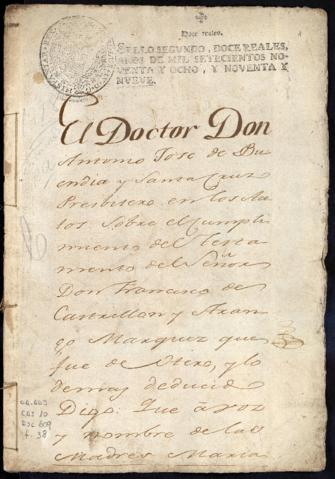 Doce reales.
SELLO SEGUNDO, DOCE REALES,
AÑOS DE MIL SETECIENTOS NO-
VENTA Y OCHO, Y NOVENTA Y
NUEVE.
El Doctor Don
Antonio Jose de Bu
endia y Santa Cruz
Presbitero en los Au
tos sobre el cumpli
miento del Testa
mento del Señor
Don Francisco de
Castrillon y Aran
go Marquez que
fue de Otero, y lo
demas deducido
Digo: Que à voz
y nombre de las
Madres Maria